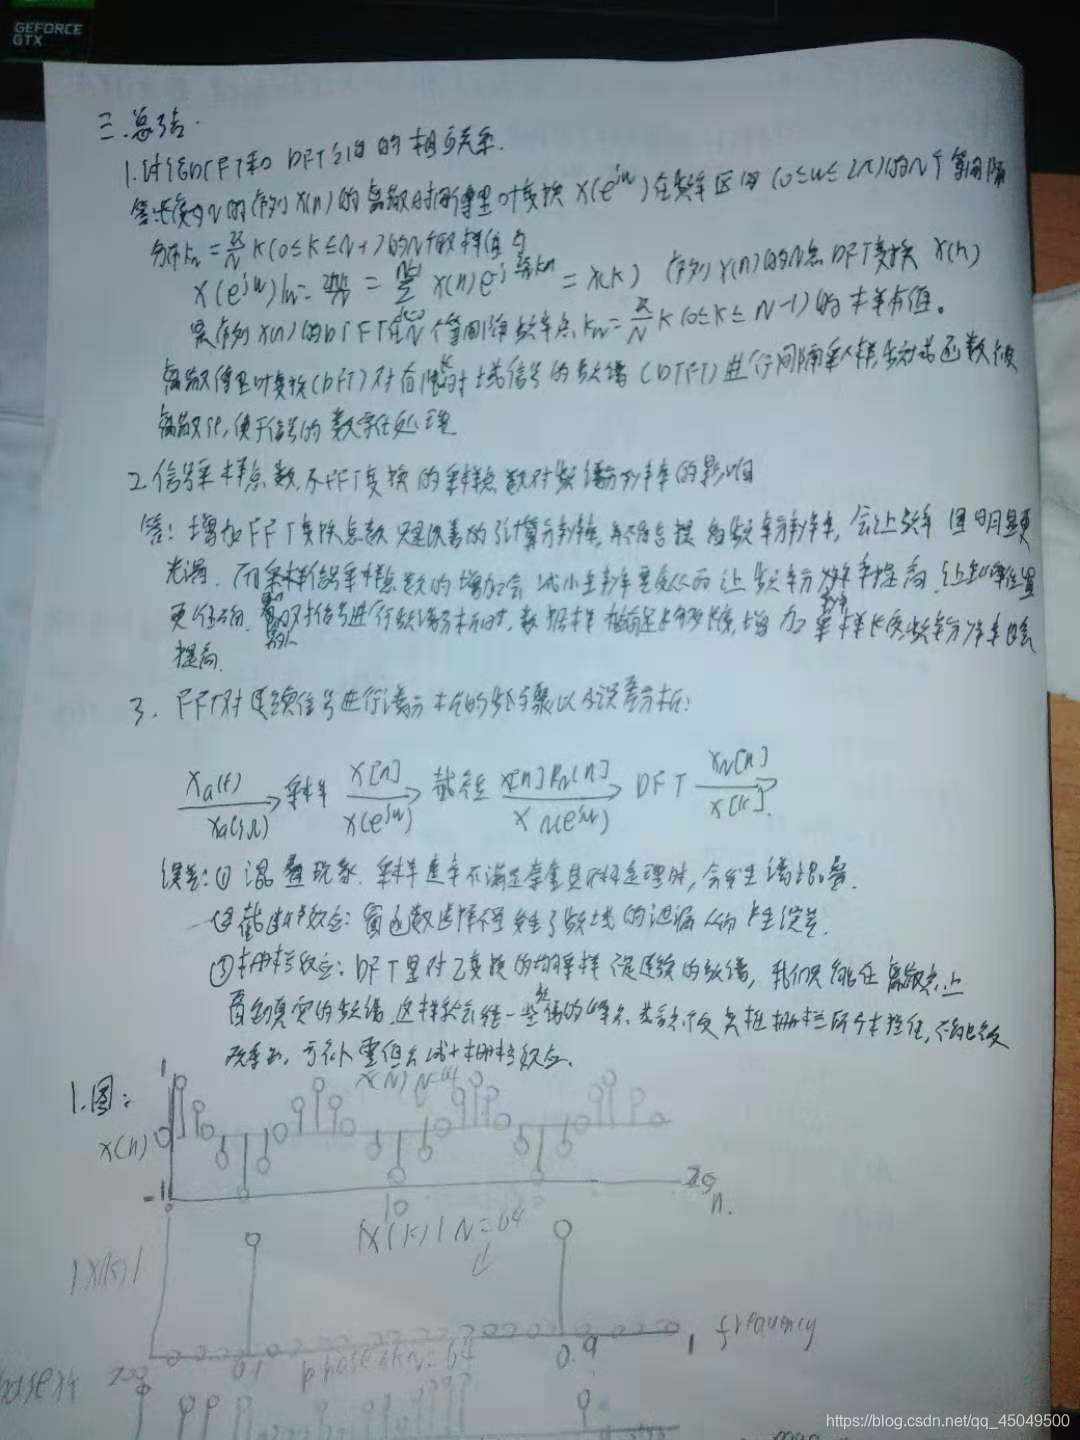 GEFORCE
GTX
三.总结.
1.讨论DTFT和DFT之间的相互关系.
答:长度为N的序列X(n)的离散时间傅里叶变换 X(e^{jw})在频率区间(0≤w≤2π)的N个等间隔
分布 k_w = 2π/N k(0≤k≤N-1)的N个取样值为
X(e^{jw})|w= 2πk/N = Σ x(n)e^{-j 2π/N kn} = X(k) 序列X(n)的N点DFT变换 X(k)
是序列X(n)的DTFT在N个等间隔频率点 k_w = 2π/N k(0≤k≤N-1)的样本值。
离散傅里叶变换(DFT)对有限长时域信号的频谱(DTFT)进行间隔采样,频域函数被
离散化,便于信号的数字化处理
2.信号采样点数,不FFT变换的采样点数对频谱分辨率的影响
答:增加FFT变换点数 只是改善的了计算分辨率,并不能提高频率分辨率,会让频率图明显更
光滑.而采样信号采样点数的增加会减小主瓣宽度从而让频率分辨率提高,让 位置
更准确. 对信号进行频谱分析时,数据样 足够多长度,增加采样长度频率分辨率也会
提高.
3. FFT对连续信号进行谱分析的步骤以及误差分析:
Xa(t) 采样 X[n] 截短 X[n]R_N[n] DFT X_N[n]
Xa(jΩ) X(e^{jw}) X_N(e^{jw}) X[k].
误差:① 混叠现象.采样速率不满足奈奎斯特定理时,会发生谱混叠.
② 截断效应:窗函数选择不 发生了频域的泄漏从而产生误差.
③ 栅栏效应:DFT是对Z变换的均匀采样 不是连续的频谱,我们只能在离散点上
看到真实的频谱.这样就会使一些频谱的峰点 或谷点被尖桩栅栏所拦住,不能被
观察到,可补零值去减小栅栏效应.
1.图:
1 X(N) N=64
X(n)
-1 0 10 20 n.
|X(k)| N=64
|X(k)|
0 0.1 0.9 1 frequency
N=64
200
https://blog.csdn.net/qq_45049500